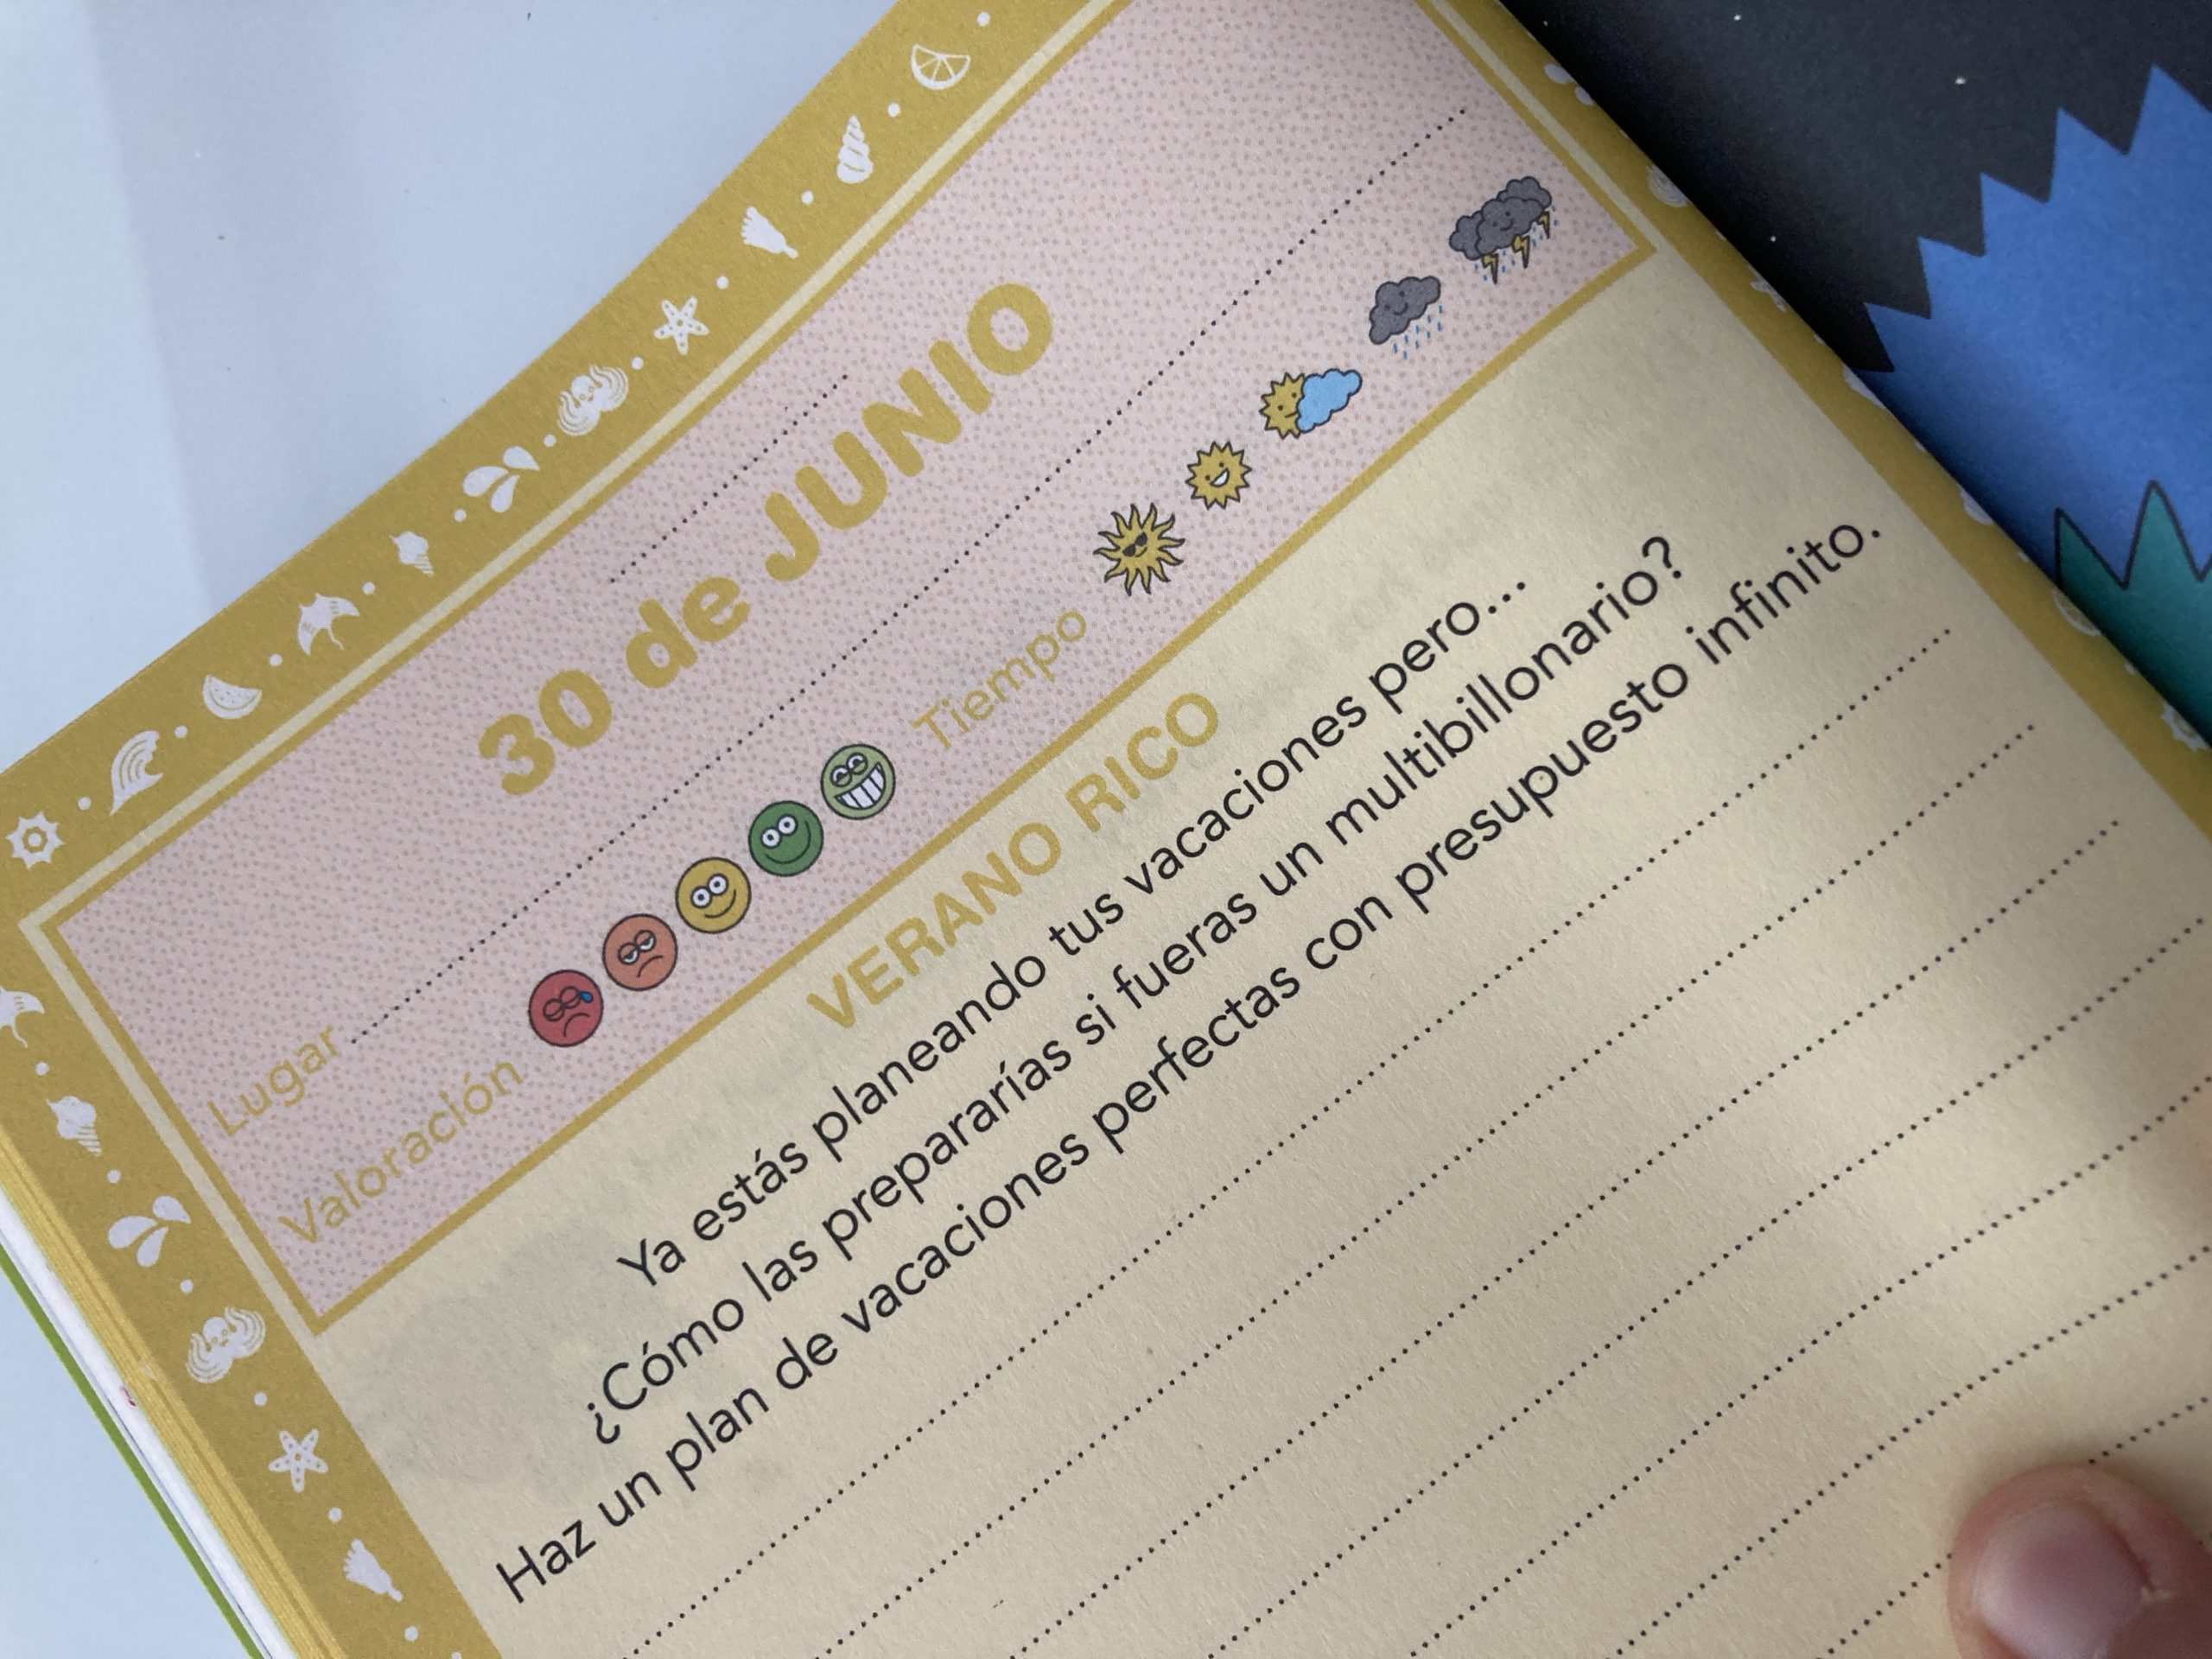 30 de JUNIO
Lugar
Valoración Tiempo
VERANO RICO
Ya estás planeando tus vacaciones pero...
¿Cómo las prepararías si fueras un multibillonario?
Haz un plan de vacaciones perfectas con presupuesto infinito.